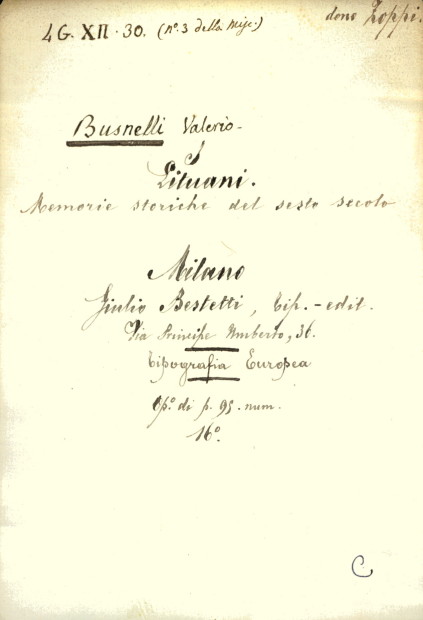 dono Zoppi.
4 G. XII. 30. (nº. 3 della Misc.)
Busnelli Valerio -
I
Lituani.
Memorie storiche del sesto secolo
Milano
Giulio Bestetti, Tip. - edit.
Via Principe Umberto, 36.
Tipografia Europea
Opº. di p. 95. num.
16º.
C